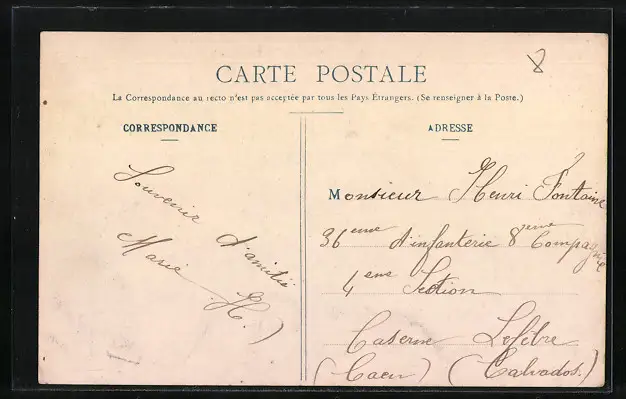 8
CARTE POSTALE
La Correspondance au recto n'est pas acceptée par tous les Pays Étrangers. (Se renseigner à la Poste.)
CORRESPONDANCE
Souvenir d'amitié
Marie H.)
ADRESSE
Monsieur Henri Fontaine
36eme d'infanterie 8eme Compagnie
4eme Section
Caserne Lefèbre
(Caen) (Calvados.)